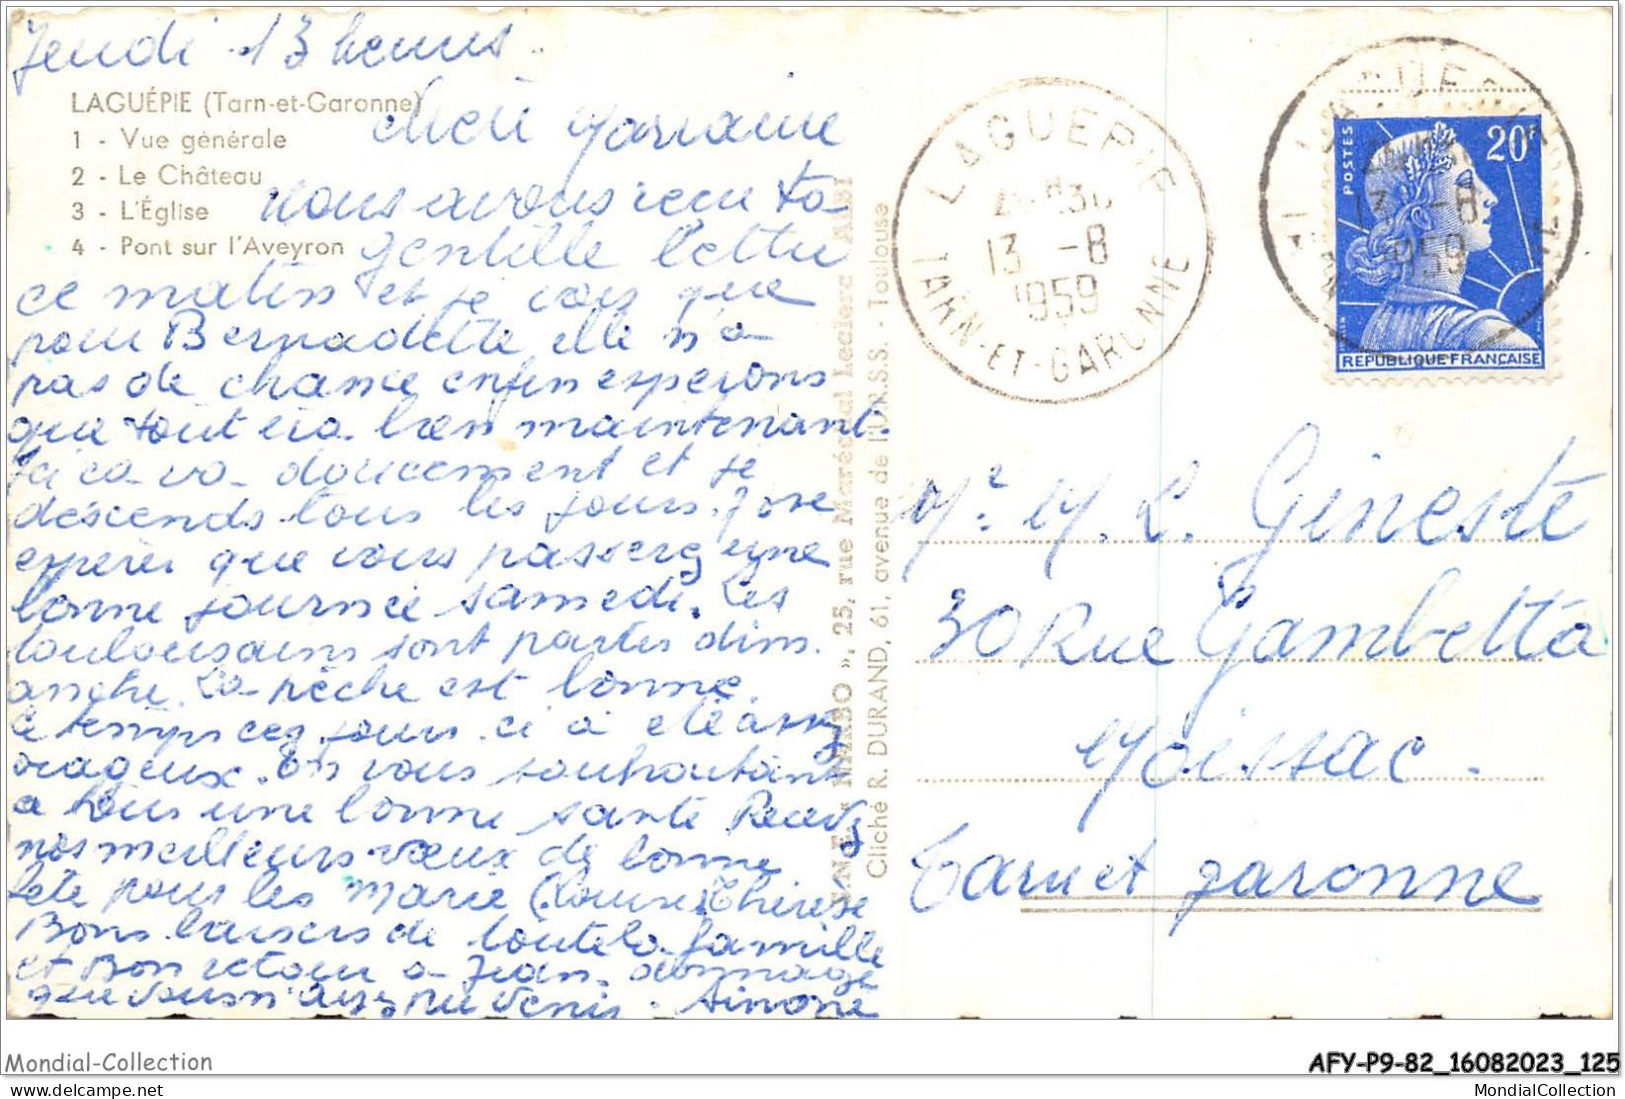 Jeudi 13 heures.
LAGUÉPIE (Tarn-et-Garonne)
1 - Vue générale
2 - Le Château
3 - L'Église
4 - Pont sur l'Aveyron
chère marraine
nous avons reçu ta
gentille lettre
ce matin et je vois que
pour Bernadette elle n'a
pas de chance enfin esperons
que tout ira bien maintenant.
Ici ca va doucement et je
descends tous les jours. J'ose
espérer que vous passerez une
bonne journée samedi. Les
toulousains sont partis dim.
anche. La pêche est bonne.
le temps ces jours ci a été assez
orageux. En vous souhaitant
a tous une bonne santé Recevez
nos meilleurs vœux de bonne
fête pour les Marie (Louise Thérèse
Bons baisers de toute la famille
et Bon retour a Jean. dommage
que vous n'ayez pu venir. Simone
25, rue Maréchal Leclerc ALBI
Cliché R. DURAND, 61, avenue de l'U.R.S.S. - Toulouse
LAGUEPIE
13 -8
1959
TARN-ET-GARONNE
POSTES
20F
13 -8
1959
REPUBLIQUE FRANÇAISE
Me M. L. Gineste
30 Rue Gambetta
Moissac.
Tarn et garonne
Mondial-Collection
AFY-P9-82_16082023_125
https://www.delcampe.net/fr/collections/store/MONDIALCOLLECTION
MondialCollection